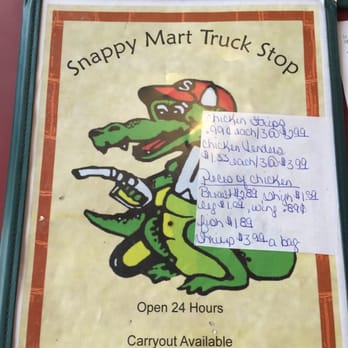 Snappy Mart Truck Stop
S
Chicken Strips
.99¢ each/3@$2.99
Chicken Tenders
$1.53 each/3@$3.99
Pieces of chicken
Breast $2.89, thigh $1.89
leg $1.09, wing .89¢
fish $1.89
Shrimp $3.99 a bag
Open 24 Hours
Carryout Available